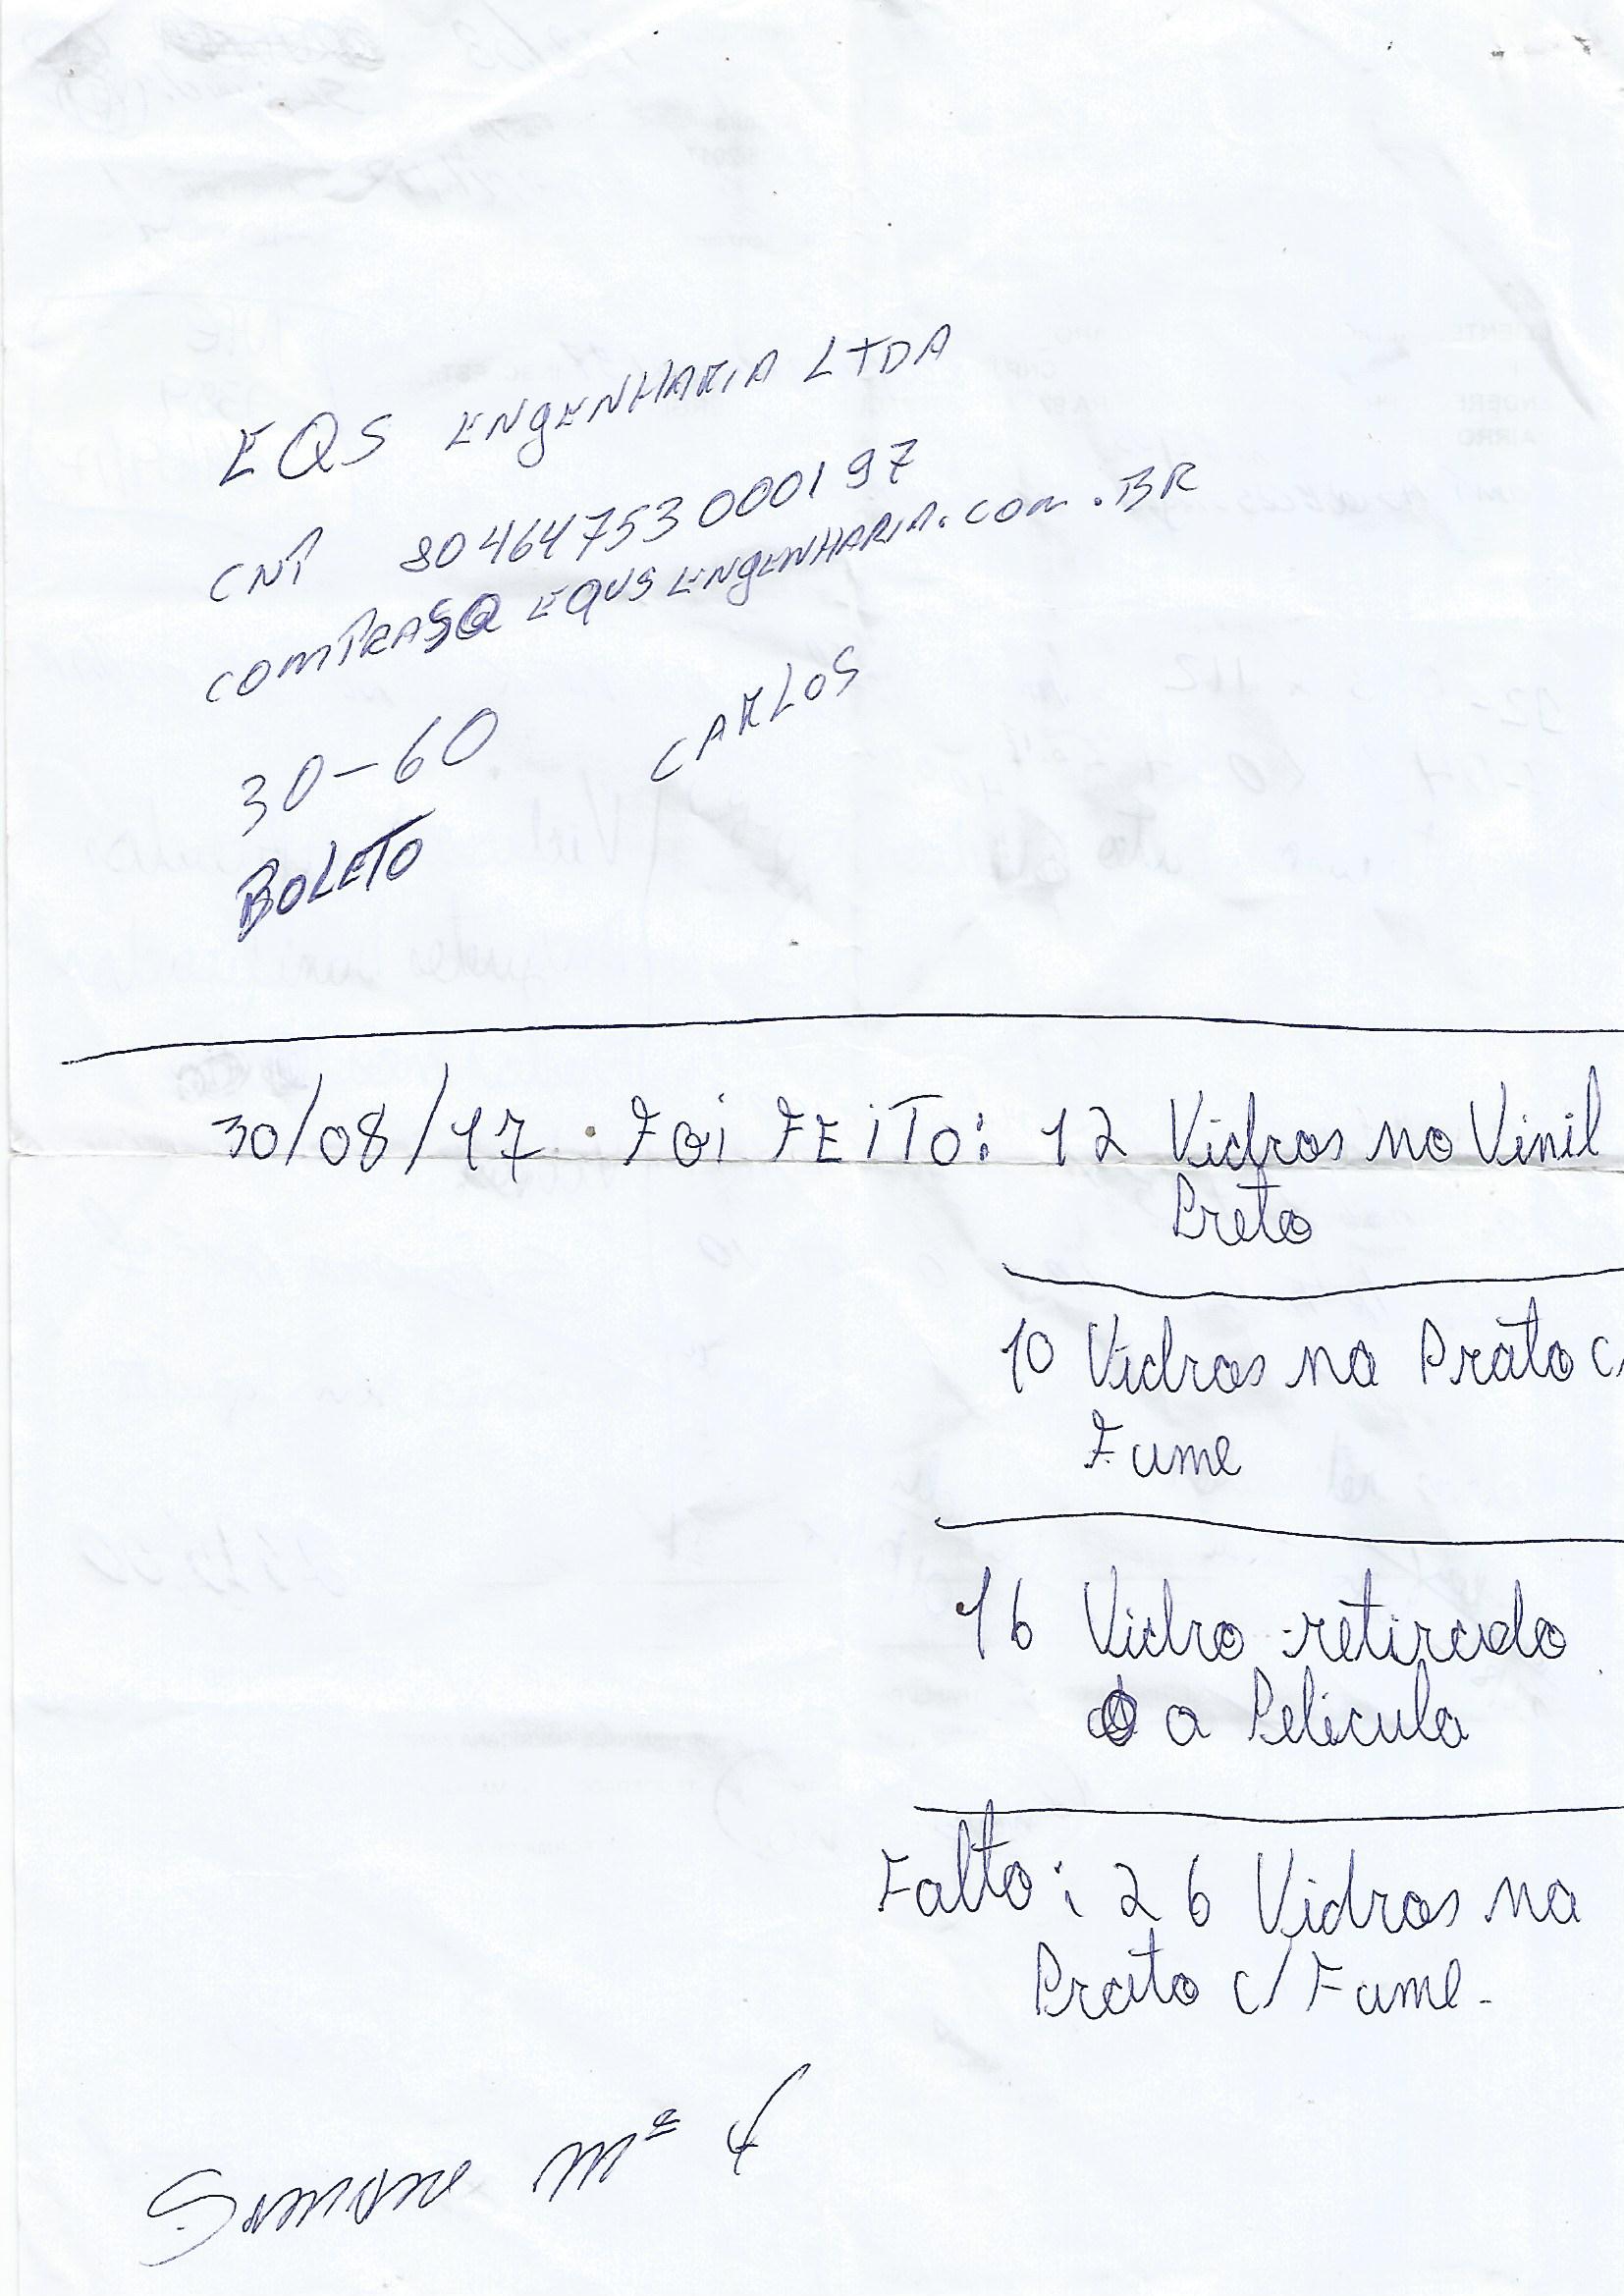 EQS ENGENHARIA LTDA
CNP 80464753000197
COMPRAS@EQUSENGENHARIA.COM.BR
30-60 CARLOS
BOLETO
30/08/17. FOI FEITO: 12 Vidros no Vinil
Preto
10 Vidros na Prata c/
Fume
16 Vidro retirado
a Pelicula
Falta: 26 Vidros na
Prata c/ Fume.
Simone Mª